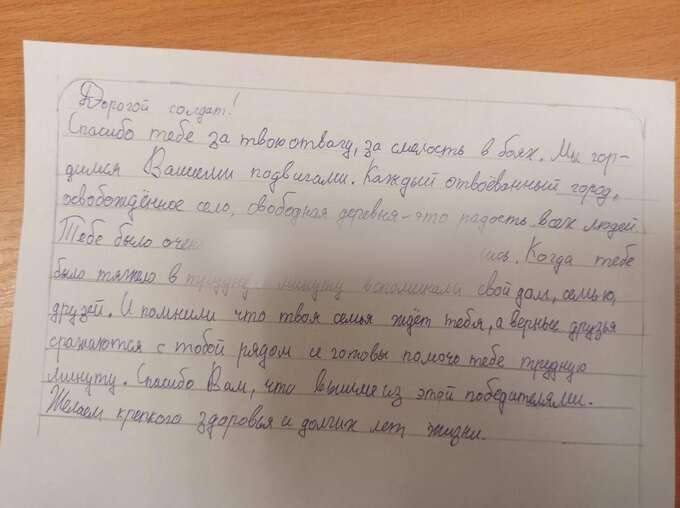 Дорогой солдат!
Спасибо тебе за твою отвагу, за смелость в боях. Мы гор-
димся Вашими подвигами. Каждый отвоёванный город,
освобождённое село, свободная деревня - это радость всех людей
Тебе было Когда тебе
было тяжело в трудную минуту вспоминали свой дом, семью,
друзей. И помнили что твоя семья ждёт тебя, а верные друзья
сражаются с тобой рядом и готовы помочь тебе трудную
минуту. Спасибо Вам, что вышли из этой победителями.
Желаем крепкого здоровья и долгих лет жизни.